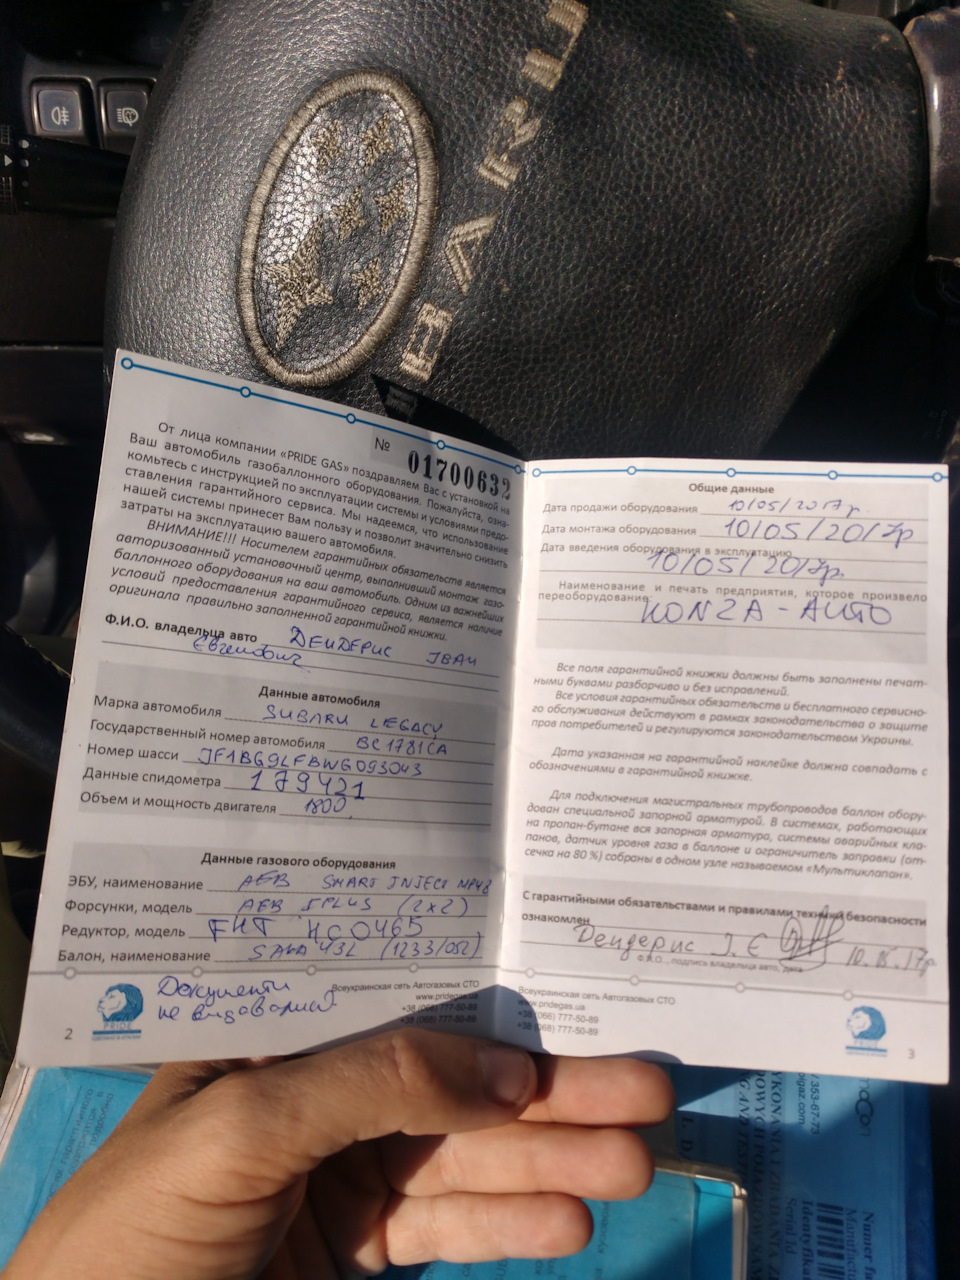 SUBARU
№ 01700632
От лица компании «PRIDE GAS» поздравляем Вас с установкой на
Ваш автомобиль газобаллонного оборудования. Пожалуйста, озна-
комьтесь с инструкцией по эксплуатации системы и условиями предо-
ставления гарантийного сервиса. Мы надеемся, что использование
нашей системы принесет Вам пользу и позволит значительно снизить
затраты на эксплуатацию вашего автомобиля.
ВНИМАНИЕ!!! Носителем гарантийных обязательств является
авторизованный установочный центр, выполнивший монтаж газо-
баллонного оборудования на ваш автомобиль. Одним из важнейших
условий предоставления гарантийного сервиса, является наличие
оригинала правильно заполненной гарантийной книжки.
Ф.И.О. владельца авто Дендерис Іван
Євгенович
Данные автомобиля
Марка автомобиля SUBARU LEGACY
Государственный номер автомобиля BC1781CA
Номер шасси JF1BG9LFBWG093043
Данные спидометра 179421
Объем и мощность двигателя 1800
Данные газового оборудования
ЭБУ, наименование AEB SMART INJECT MP48
Форсунки, модель AEB IPLUS (2x2)
Редуктор, модель
Балон, наименование 43L (1233/052)
Документи
не видавались
Всеукраинская сеть Автогазовых СТО
www.pridegas.ua
+38 (066) 777-50-89
+38 (068) 777-50-89
PRIDE
2
Общие данные
Дата продажи оборудования 10/05/2017р.
Дата монтажа оборудования 10/05/2017р
Дата введения оборудования в эксплуатацию
10/05/2017р.
Наименование и печать предприятия, которое произвело
переоборудование: KONZA-AUTO
Все поля гарантийной книжки должны быть заполнены печат-
ными буквами разборчиво и без исправлений.
Все условия гарантийных обязательств и бесплатного сервисно-
го обслуживания действуют в рамках законодательства о защите
прав потребителей и регулируются законодательством Украины.
Дата указанная на гарантийной наклейке должна совпадать с
обозначениями в гарантийной книжке.
Для подключения магистральных трубопроводов баллон обору-
дован специальной запорной арматурой. В системах, работающих
на пропан-бутане вся запорная арматура, системы аварийных кла-
панов, датчик уровня газа в баллоне и ограничитель заправки (от-
сечка на 80 %) собраны в одном узле называемом «Мультиклапан».
С гарантийными обязательствами и правилами техники безопасности
ознакомлен Дендерис І. Є
Ф.И.О., подпись владельца авто, дата
Всеукраинская сеть Автогазовых СТО
www.pridegas.ua
+38 (066) 777-50-89
+38 (068) 777-50-89
PRIDE
3
353-67-73
Serial Id